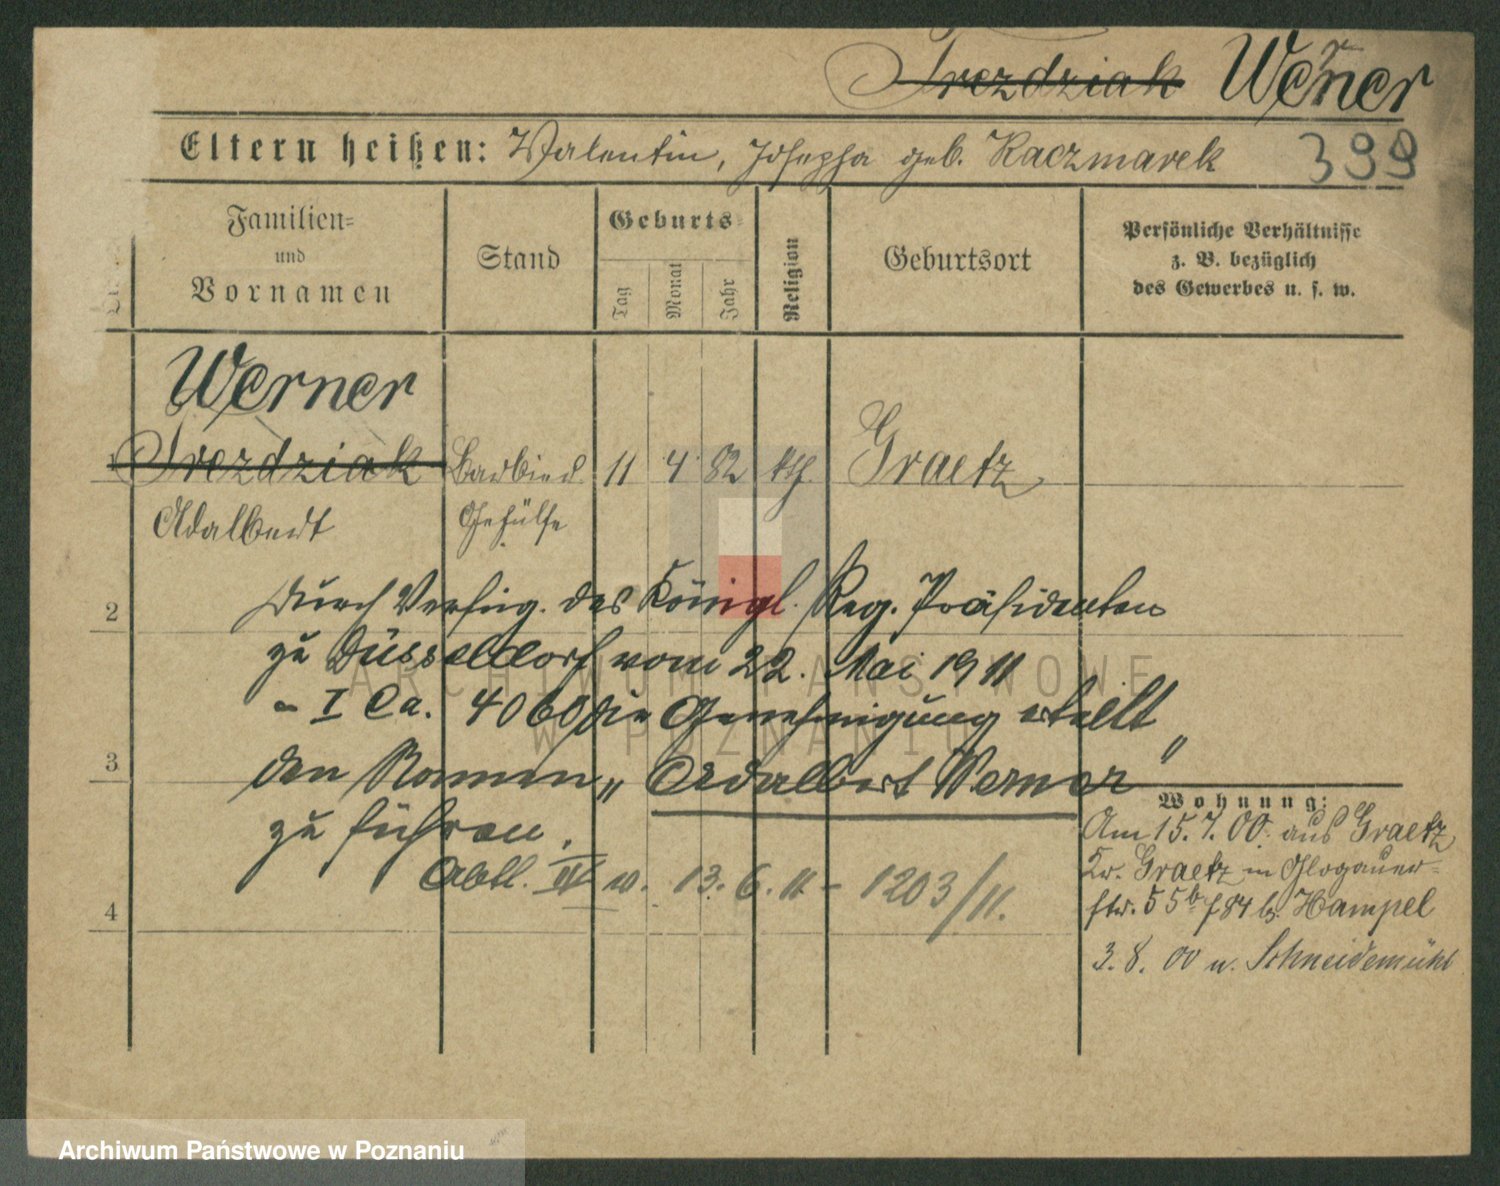 Trozdziak Werner
Eltern heißen: Valentin, Josepha geb. Kaczmarek 399
Familien=
und
Vornamen
Stand
Geburts=
Tag Monat Jahr
Religion
Geburtsort
Persönliche Verhältnisse
z. B. bezüglich
des Gewerbes u. s. w.
Werner
1 Trozdziak Barbier 11 4 82 kth. Graetz
Adalbert Gehülfe
2 Durch Verfüg. des Königl. Reg. Präsidenten
zu Düsseldorf vom 22. Mai 1911
- I Ca. 4060 die Genehmigung erteilt
3 den Namen „Adalbert Werner"
zu führen.
Abtl. IV w. 13. 6. 11 - 1203/11.
4
Wohnung:
Am 15. 7. 00. aus Graetz
Kr. Graetz in Glogauer=
str. 55b f 84 b. Hampel
3. 8. 00 n. Schneidemühl
ARCHIWUM PAŃSTWOWE
W POZNANIU
Archiwum Państwowe w Poznaniu